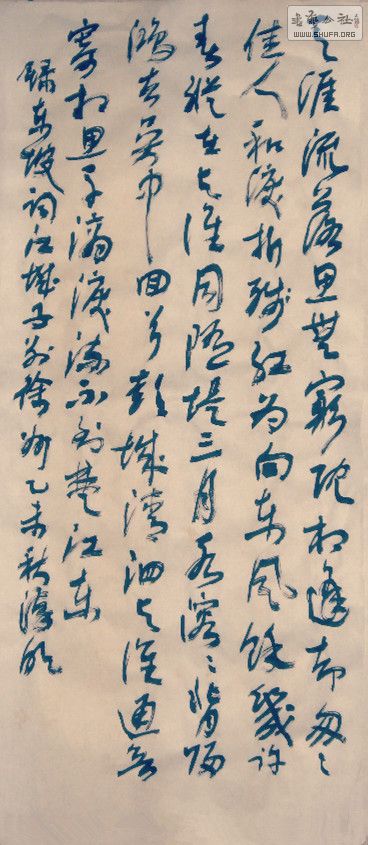 書法公社
www.SHUFA.ORG
天涯流落思無窮既相逢却匆々
佳人和淚折殘紅為向東風餘幾許
春縱在与誰同隋堤三月水溶々背歸
鴻去吳中回首彭城清泗与淮通
寄相思千滴淚流不到楚江東
錄東坡詞江城子別徐州乙未秋